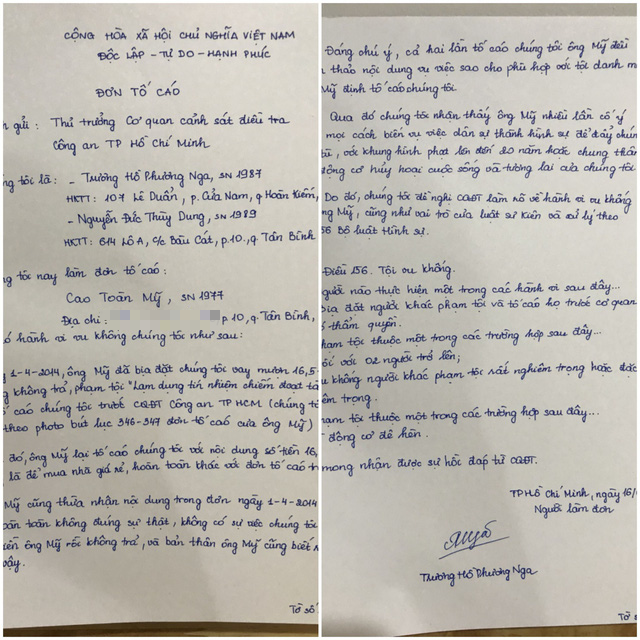 CỘNG HÒA XÃ HỘI CHỦ NGHĨA VIỆT NAM
ĐỘC LẬP - TỰ DO - HẠNH PHÚC
ĐƠN TỐ CÁO
gửi: Thủ trưởng Cơ quan cảnh sát điều tra
Công an TP Hồ Chí Minh
tôi là: - Trương Hồ Phương Nga, SN 1987
HKTT: 107 Lê Duẩn, p. Cửa Nam, q Hoàn Kiếm,
- Nguyễn Đức Thùy Dung, SN 1989
HKTT: 614 Lô A, c/c Bàu Cát, p.10, q. Tân Bình
tôi nay làm đơn tố cáo:
Cao Toàn Mỹ, SN 1977
Địa chỉ: p 10, q. Tân Bình,
hành vi vu khống chúng tôi như sau:
1-4-2014, ông Mỹ đã bịa đặt chúng tôi vay mượn 16,5
không trả, phạm tội "Lạm dụng tín nhiệm chiếm đoạt
cáo chúng tôi trước CQĐT Công an TP HCM (chúng
theo photo bút lục 346-347 đơn tố cáo của ông Mỹ)
đó, ông Mỹ lại tố cáo chúng tôi với nội dung số tiền 16,
là để mua nhà giá rẻ, hoàn toàn khác với đơn tố cáo
Mỹ cũng thừa nhận nội dung trong đơn ngày 1-4-2014
toàn không đúng sự thật, không có sự việc chúng tôi
ông Mỹ rồi không trả, và bản thân ông Mỹ cũng biết
vậy.
Tờ số
Đáng chú ý, cả hai lần tố cáo chúng tôi ông Mỹ đều
thảo nội dung vụ việc sao cho phù hợp với tội danh
Mỹ định tố cáo chúng tôi.
Qua đó chúng tôi nhận thấy ông Mỹ nhiều lần cố ý
mọi cách biến vụ việc dân sự thành hình sự để đẩy chúng
tù, với khung hình phạt lên đến 20 năm hoặc chung thân
động cơ hủy hoại cuộc sống và tương lai của chúng tôi
Do đó, chúng tôi đề nghị CQĐT làm rõ về hành vi vu khống
Mỹ, cũng như vai trò của luật sư Kiên và xử lý theo
Bộ luật Hình sự.
Điều 156. Tội vu khống.
người nào thực hiện một trong các hành vi sau đây...
đặt người khác phạm tội và tố cáo họ trước cơ quan
thẩm quyền.
phạm tội thuộc một trong các trường hợp sau đây...
với 02 người trở lên;
khống người khác phạm tội rất nghiêm trọng hoặc đặc
trọng.
phạm tội thuộc một trong các trường hợp sau đây...
động cơ đê hèn.
mong nhận được sự hồi đáp từ CQĐT.
TP Hồ Chí Minh, ngày 16/
Người làm đơn
Trương Hồ Phương Nga
Tờ